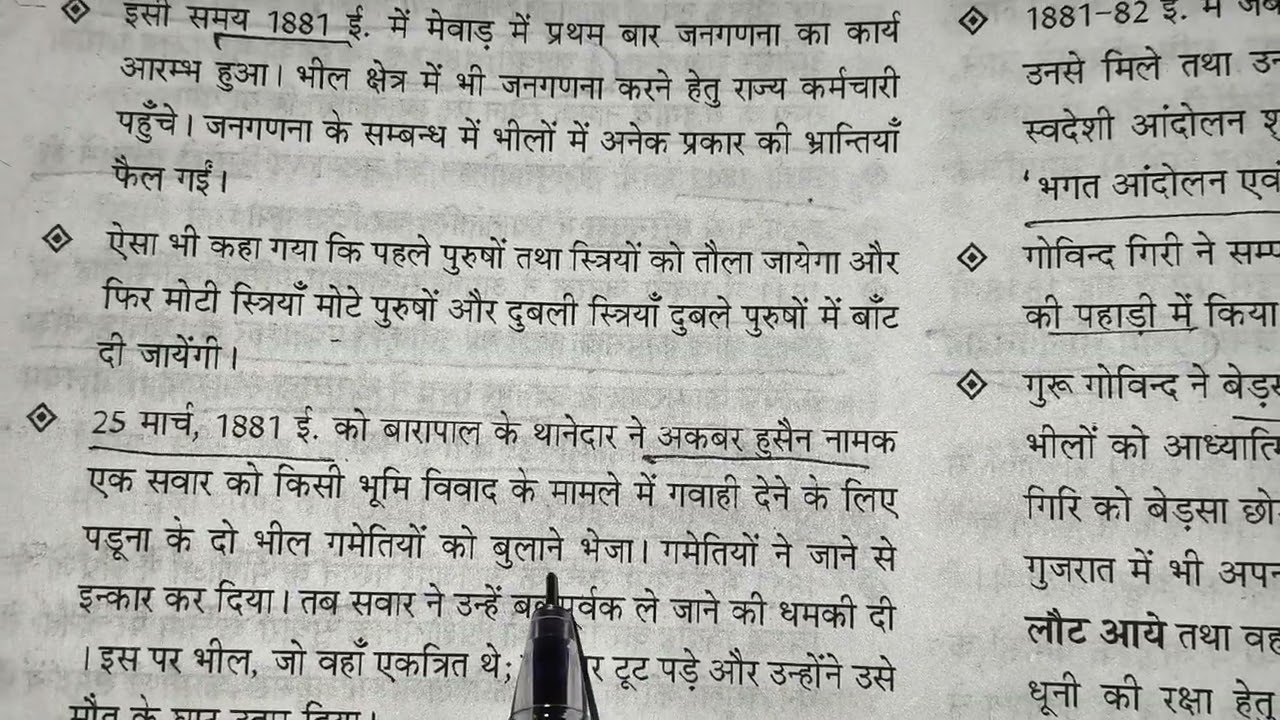 इसी समय 1881 ई. में मेवाड़ में प्रथम बार जनगणना का कार्य
आरम्भ हुआ। भील क्षेत्र में भी जनगणना करने हेतु राज्य कर्मचारी
पहुँचे। जनगणना के सम्बन्ध में भीलों में अनेक प्रकार की भ्रान्तियाँ
फैल गईं।
ऐसा भी कहा गया कि पहले पुरुषों तथा स्त्रियों को तौला जायेगा और
फिर मोटी स्त्रियाँ मोटे पुरुषों और दुबली स्त्रियाँ दुबले पुरुषों में बाँट
दी जायेंगी।
25 मार्च, 1881 ई. को बारापाल के थानेदार ने अकबर हुसैन नामक
एक सवार को किसी भूमि विवाद के मामले में गवाही देने के लिए
पडूना के दो भील गमेतियों को बुलाने भेजा। गमेतियों ने जाने से
इन्कार कर दिया। तब सवार ने उन्हें ले जाने की धमकी दी
। इस पर भील, जो वहाँ एकत्रित थे; टूट पड़े और उन्होंने उसे
मौत के घाट उतार दिया।
1881-82 ई. में
उनसे मिले तथा
स्वदेशी आंदोलन
'भगत आंदोलन एवं
गोविन्द गिरी ने
की पहाड़ी में किया
गुरू गोविन्द ने
भीलों को
गिरि को बेड़सा
गुजरात में भी
लौट आये तथा
धूनी की रक्षा हेतु